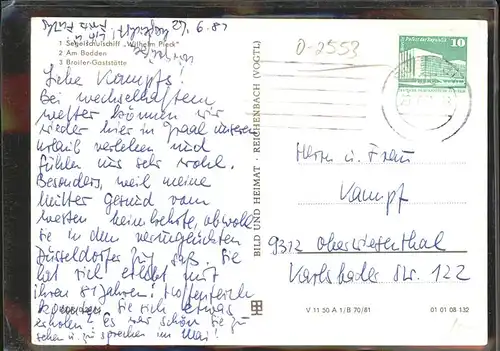 27.6.81
1 Segelschulschiff „Wilhelm Pieck"
2 Am Bodden
3 Broiler-Gaststätte
Liebe Kampfs!
Bei wechselhaftem
Wetter können wir
wieder hier in Graal unseren
Urlaub verleben und
fühlen uns sehr wohl.
Besonders, weil meine
Mutter gesund vom
Westen heimkehrte, obwohl
sie in dem verunglückten
Düsseldorfer saß. Sie
hat sich erholt mit
ihren 81 Jahren! Hoffentlich
konnten Sie sich etwas
erholen. Es war schön Sie zu
sehen u. zu sprechen im Mai!
BILD UND HEIMAT · REICHENBACH (VOGTL)
D-2553
Palast der Republik
10
Herrn u. Frau
Kampf
9312 Oberwiesenthal
Karlsbader Str. 122
V 11 50 A 1/B 70/81
01 01 08 132